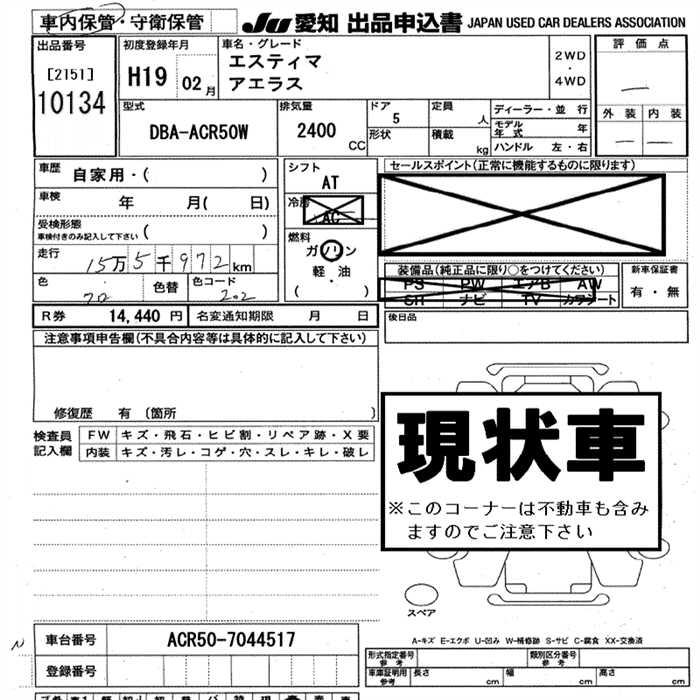 車内保管・守衛保管
JU 愛知 出品申込書 JAPAN USED CAR DEALERS ASSOCIATION
出品番号
[2151]
10134
初度登録年月
H19 02月
車名・グレード
エスティマ
アエラス
2WD
・
4WD
評価点
外装 内装
型式
DBA-ACR50W
排気量
2400 CC
ドア
5
形状
定員
人
積載
kg
ディーラー・並行
モデル年式 年
ハンドル 左・右
車歴 自家用・( )
車検 年 月( 日)
受検形態
車検付きのみ記入して下さい ( )
走行
15万5千972km
色
色替
色コード
202
シフト
AT
冷房
AC
燃料
ガソリン
軽・油
( ・ )
セールスポイント(正常に機能するものに限ります)
装備品(純正品に限り○をつけてください)
PS PW エアB AW
SR ナビ TV カワシート
新車保証書
有・無
R券 14,440 円 名変通知期限 月 日
後日品
注意事項申告欄(不具合内容等は具体的に記入して下さい)
修復歴 有〔箇所 〕
検査員
記入欄
FW キズ・飛石・ヒビ割・リペア跡・X要
内装 キズ・汚レ・コゲ・穴・スレ・キレ・破レ
現状車
※このコーナーは不動車も含み
ますのでご注意下さい
スペア
A-キズ E-エクボ U-凹み W-補修跡 S-サビ C-腐食 XX-交換済
N
車台番号 ACR50-7044517
登録番号
形式指定番号
参考
類別区分番号
参考
車庫証明用
参考
長さ cm 幅 cm 高さ cm